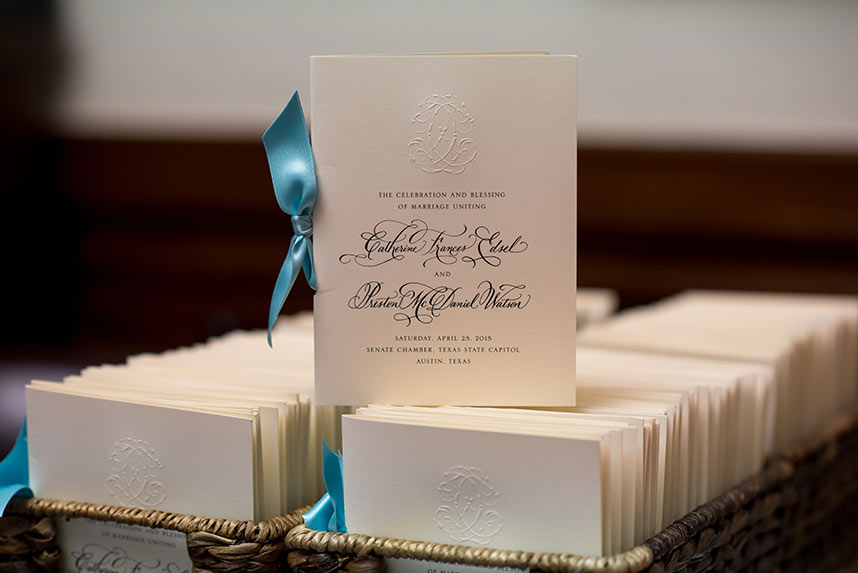 THE CELEBRATION AND BLESSING
OF MARRIAGE UNITING
Catherine Frances Edsel
AND
Preston McDaniel Watson
SATURDAY, APRIL 25, 2015
SENATE CHAMBER, TEXAS STATE CAPITOL
AUSTIN, TEXAS
THE CELEBRATION AND BLESSING
OF MARRIAGE UNITING
Catherine Frances